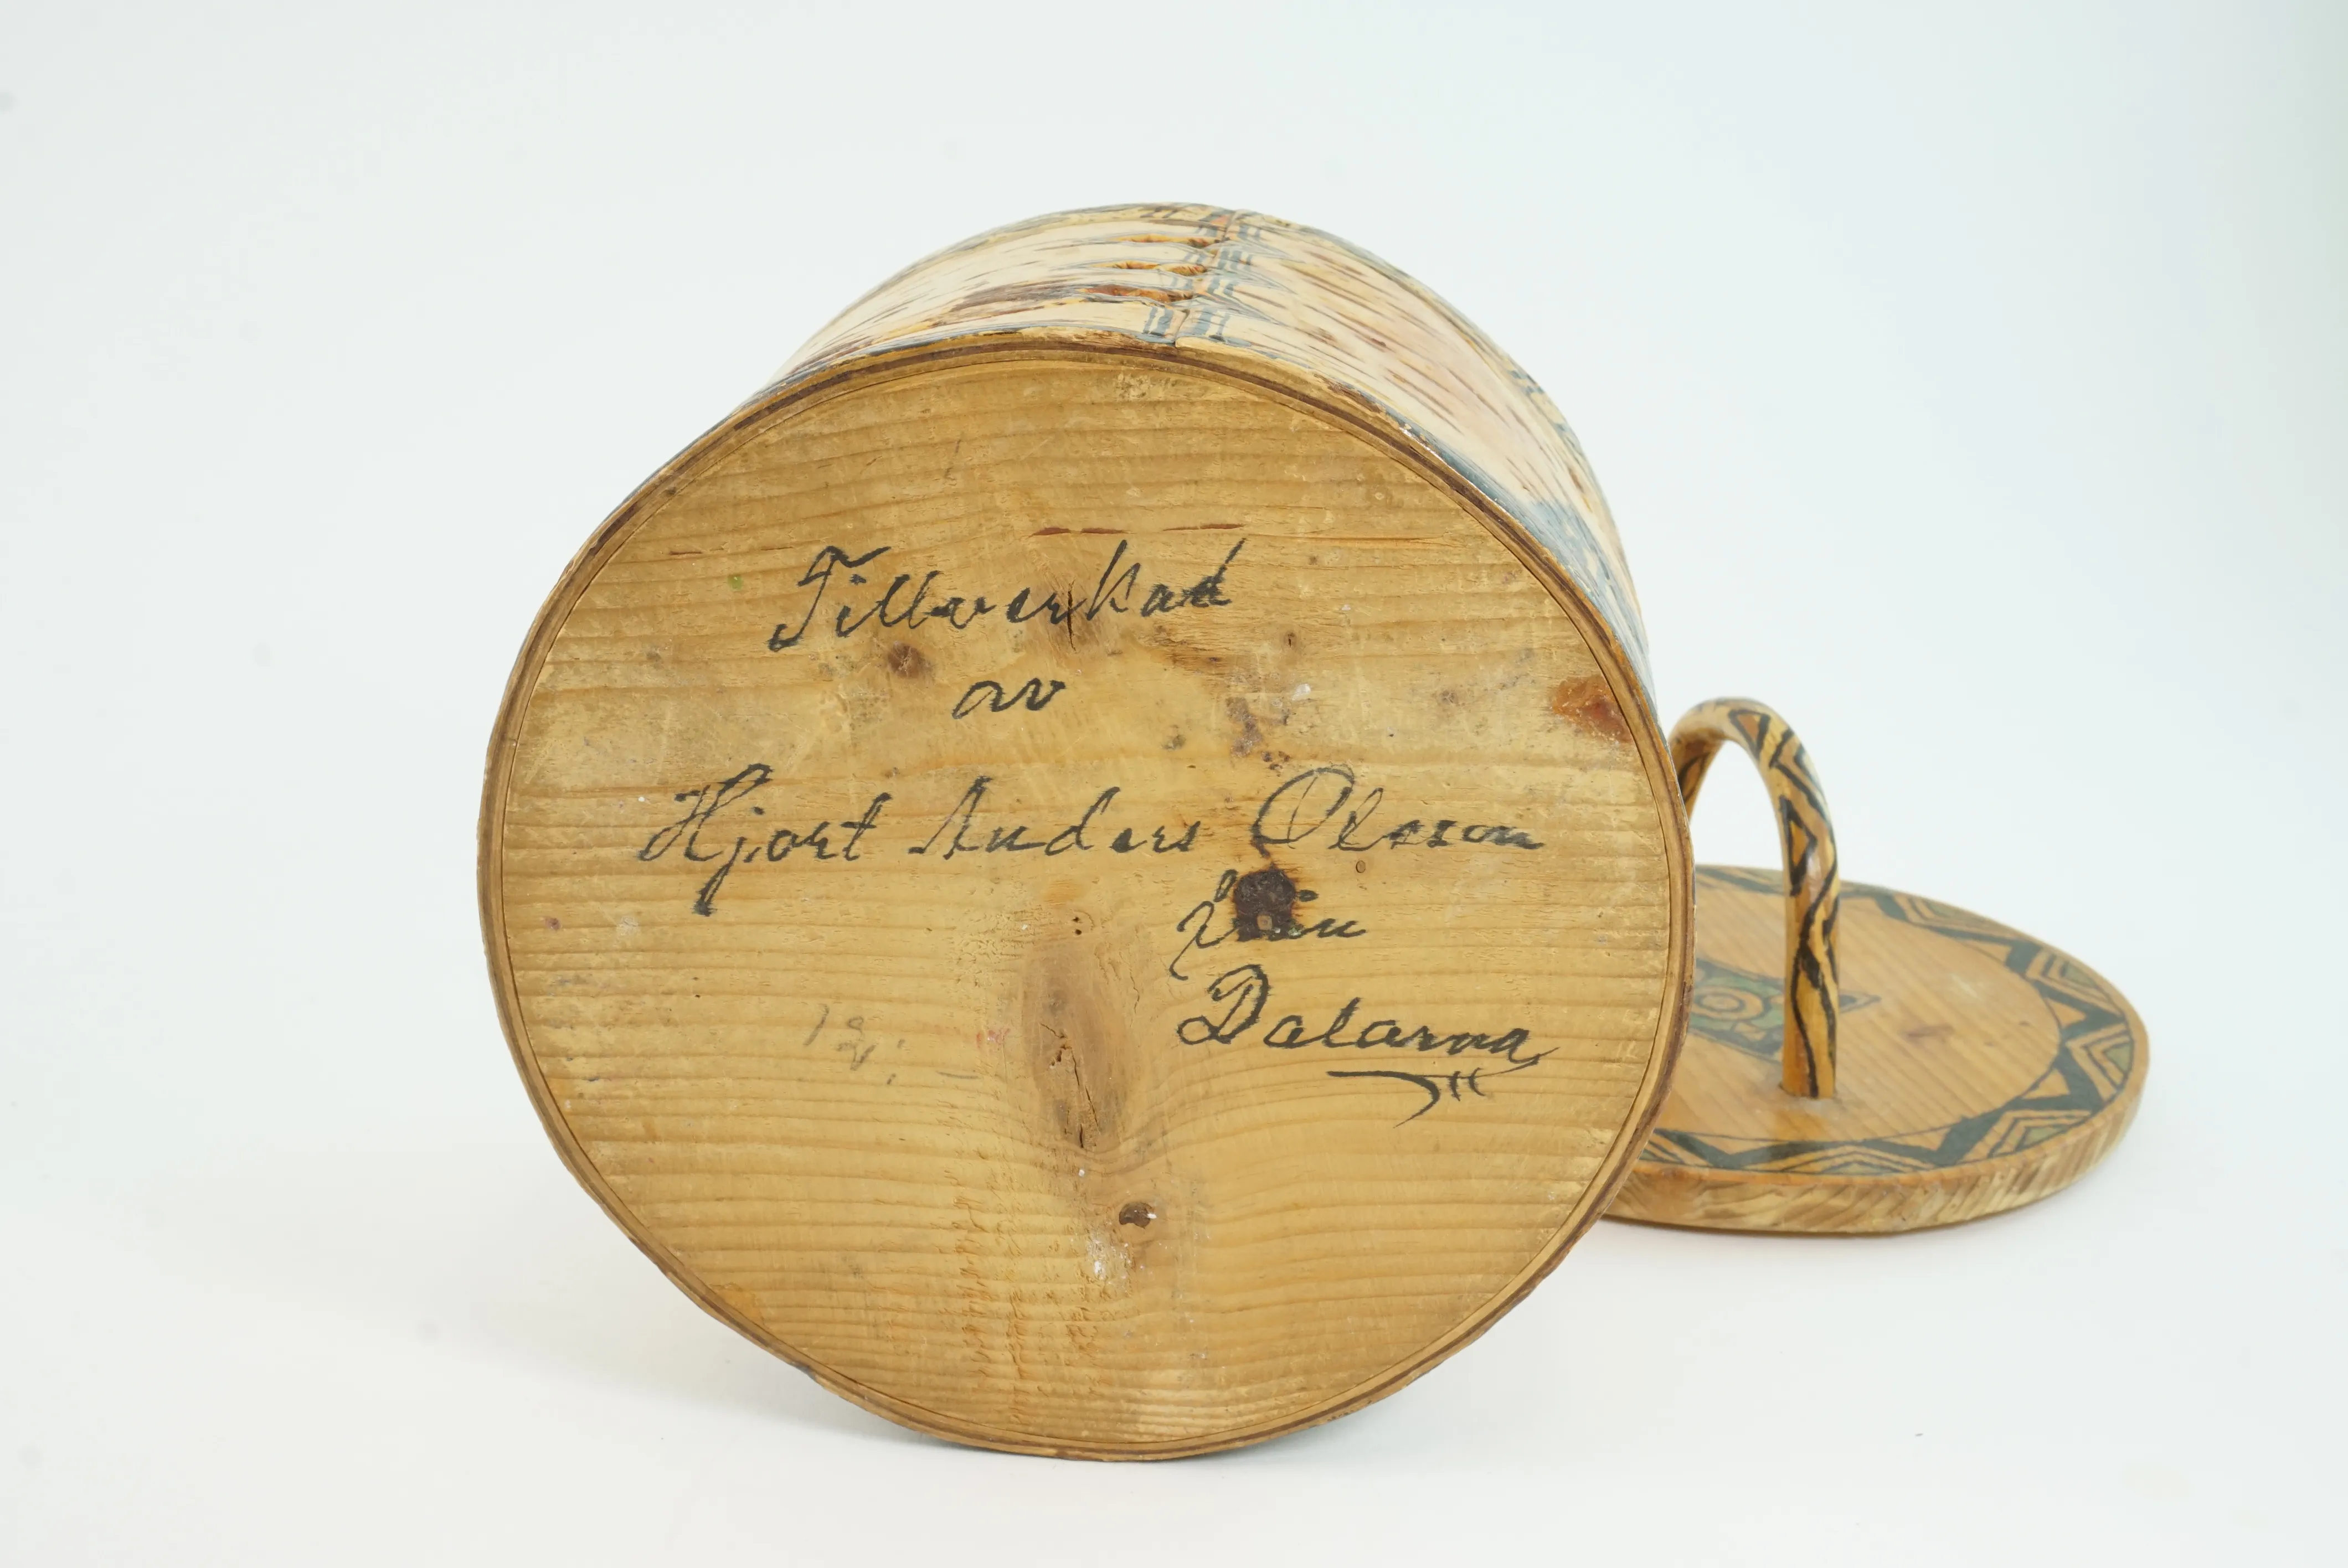 Tillverkad
av
Hjort Anders Olsson
Dalarna